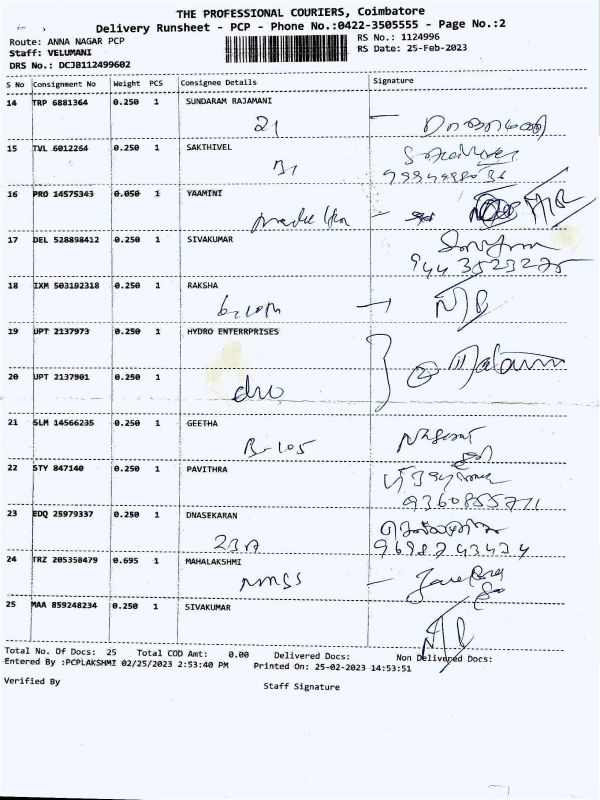 THE PROFESSIONAL COURIERS, Coimbatore
Delivery Runsheet - PCP - Phone No.:0422-3505555 - Page No.:2
Route: ANNA NAGAR PCP
RS No.: 1124996
Staff: VELUMANI
RS Date: 25-Feb-2023
DRS No.: DCJB112499602
S No Consignment No Weight PCS Consignee Details Signature
14 TRP 6881364 0.250 1 SUNDARAM RAJAMANI
21
15 TVL 6012264 0.250 1 SAKTHIVEL
16 PRO 14575343 0.050 1 YAAMINI
17 DEL 528898412 0.250 1 SIVAKUMAR
944 3523275
18 IXM 503192318 0.250 1 RAKSHA
19 UPT 2137973 0.250 1 HYDRO ENTERRPRISES
20 UPT 2137901 0.250 1
21 SLM 14566235 0.250 1 GEETHA
B-105
22 STY 847140 0.250 1 PAVITHRA
9360855771
23 EDQ 25979337 0.250 1 DNASEKARAN
23A
9698743434
24 TRZ 205358479 0.695 1 MAHALAKSHMI
25 MAA 859248234 0.250 1 SIVAKUMAR
Total No. Of Docs: 25 Total COD Amt: 0.00 Delivered Docs: Non Delivered Docs:
Entered By :PCPLAKSHMI 02/25/2023 2:53:40 PM Printed On: 25-02-2023 14:53:51
Verified By
Staff Signature